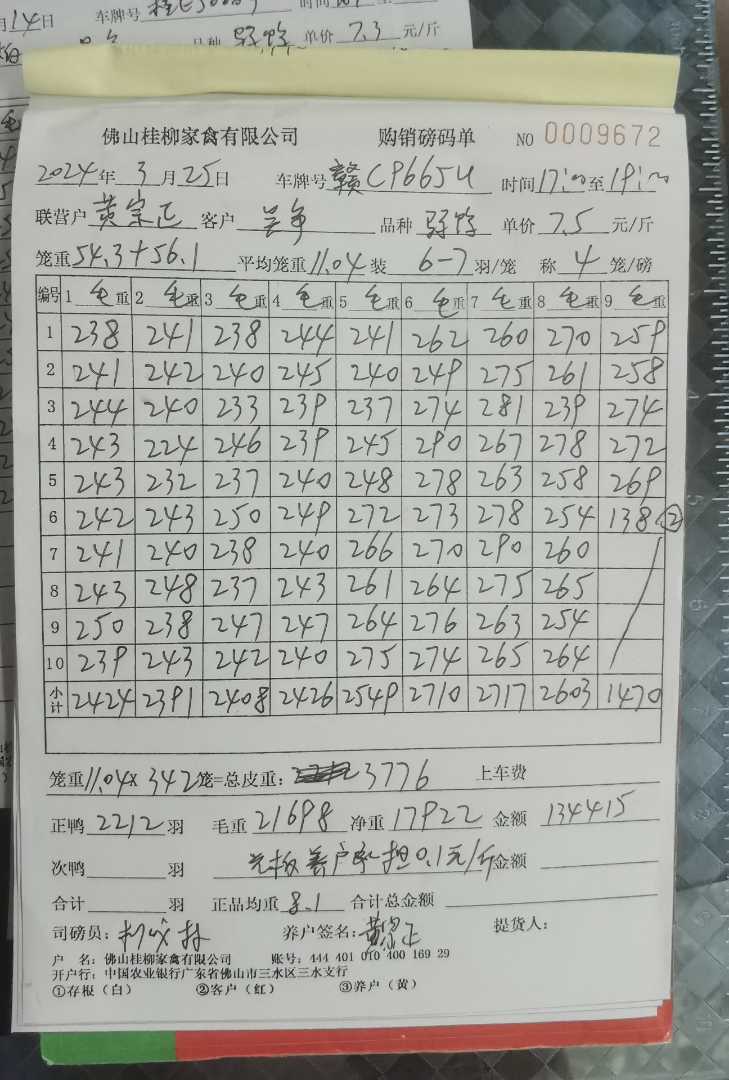 月14日 车牌号 时间
品种 单价 7.3 元/斤
佛山桂柳家禽有限公司 购销磅码单 NO 0009672
2024年 3月25日 车牌号 赣CP6654 时间17:00至19:00
联营户 黄宗正 客户 吴争 品种 单价 7.5 元/斤
笼重54.3+56.1 平均笼重11.04装 6-7羽/笼 称 4 笼/磅
编号 1 毛重 2 毛重 3 毛重 4 毛重 5 毛重 6 毛重 7 毛重 8 毛重 9 毛重
1 238 241 238 244 241 262 260 270 259
2 241 242 240 245 240 249 275 261 258
3 244 240 233 239 237 274 281 239 274
4 243 224 246 239 245 290 267 278 272
5 243 232 237 240 248 278 263 258 269
6 242 243 250 249 272 273 278 254 138②
7 241 240 238 240 266 270 290 260
8 243 248 237 243 261 264 275 265
9 250 238 247 247 264 276 263 254
10 239 243 242 240 275 274 265 264
小计 2424 2391 2408 2426 2549 2710 2717 2603 1470
笼重11.04×342笼=总皮重: 3776 上车费
正鸭 2212 羽 毛重 21698 净重 17922 金额 134415
次鸭 羽 养户承担0.1元/斤 金额
合计 羽 正品均重 8.1 合计总金额
司磅员: 养户签名: 黄宗正 提货人:
户 名: 佛山桂柳家禽有限公司 账号: 444 401 010 400 169 29
开户行: 中国农业银行广东省佛山市三水区三水支行
①存根(白) ②客户(红) ③养户(黄)